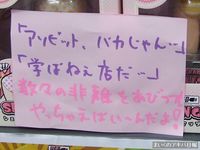 「アソビット、バカじゃん…」
「学ばねぇ店だ…」
数々の非難をあびつつ
やっちゃえばいーんだよ!
まいじのアキバ日報